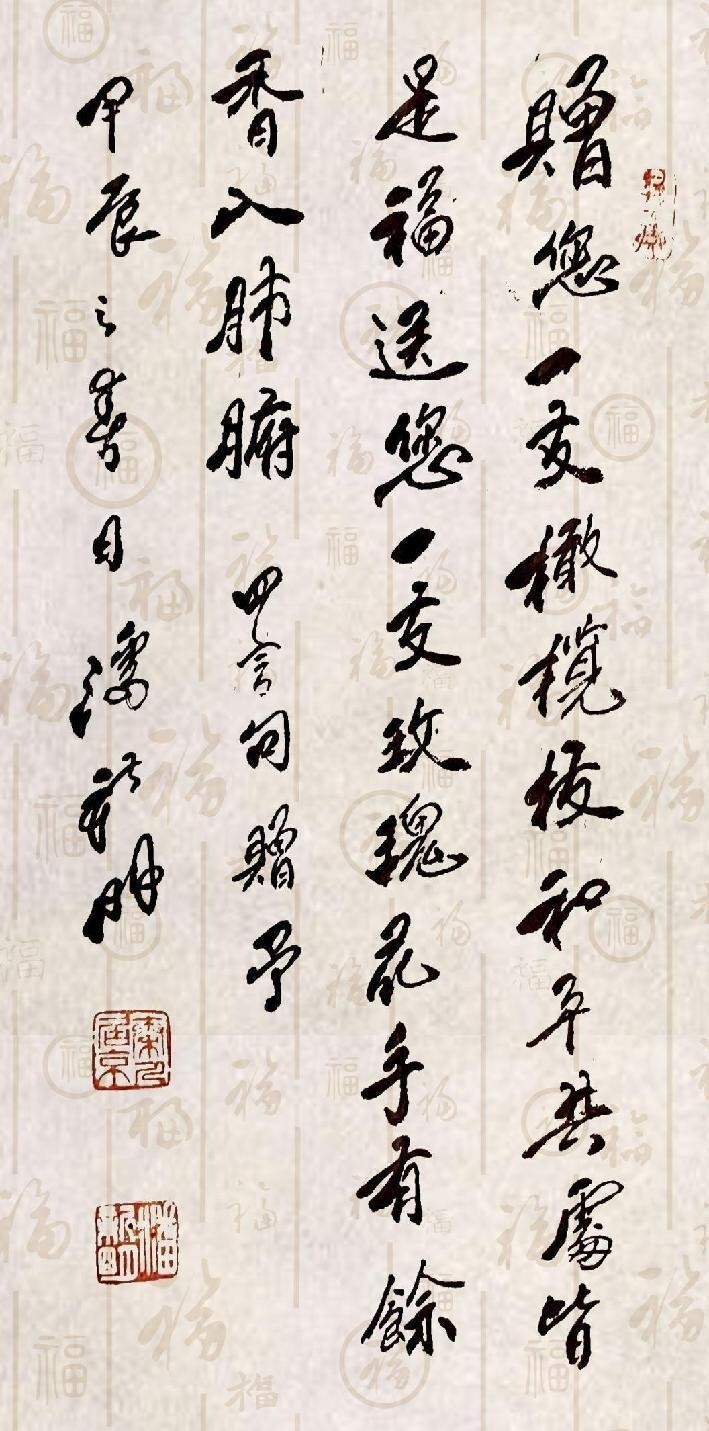 贈您一支橄欖枝和平共處皆
是福送您一支玫瑰花手有餘
香入肺腑 四言句贈予
甲辰之春日潘新明